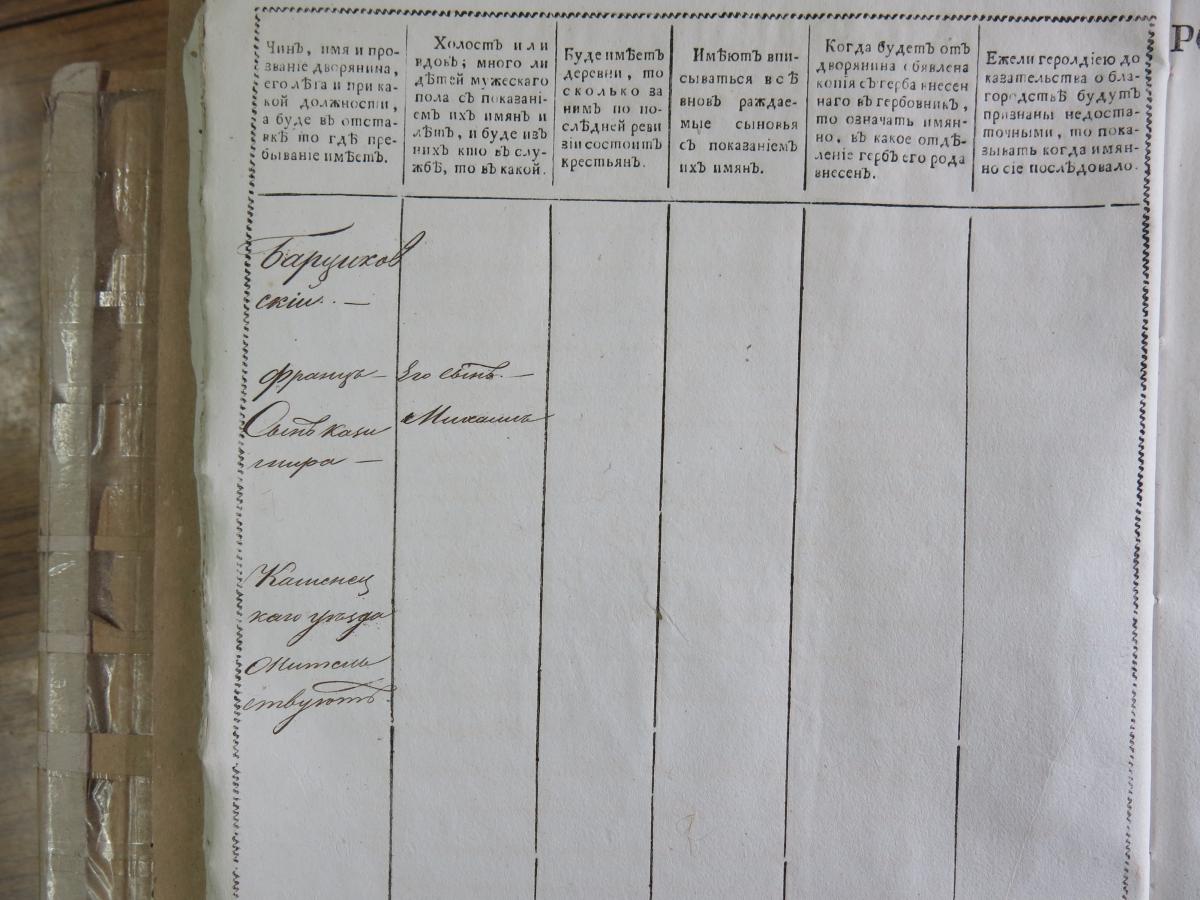 Чинъ, имя и про-
званіе дворянина,
его лѣта и при ка-
кой должности,
а буде въ отста-
вкѣ то гдѣ пре-
бываніе имѣетъ.
Холостъ или
вдовъ; много ли
дѣтей мужескаго
пола съ показані-
емъ ихъ имянъ и
лѣтъ, и буде изъ
нихъ кто въ слу-
жбѣ, то въ какой.
Буде имѣетъ
деревни, то
сколько за
нимъ по по-
слѣдней реви
зіи состоитъ
крестьянъ.
Имѣютъ впи-
сываться всѣ
вновъ раждае-
мые сыновья
съ показаніемъ
ихъ имянъ.
Когда будетъ отъ
дворянина обявлена
копія съ герба внесен
наго въ гербовникъ,
то означать имян-
но, въ какое отдѣ-
леніе гербъ его рода
внесенъ.
Ежели герольдіею до
казательства о бла-
городствѣ будутъ
признаны недоста-
точными, то пока-
зывать когда имян-
но сіе послѣдовало.
Барциков
скій. —
Францъ —
Сынъ кази
мира —
Каменец
каго уѣзда
жительс
ствуютъ
Его сынъ. —
Михаилъ